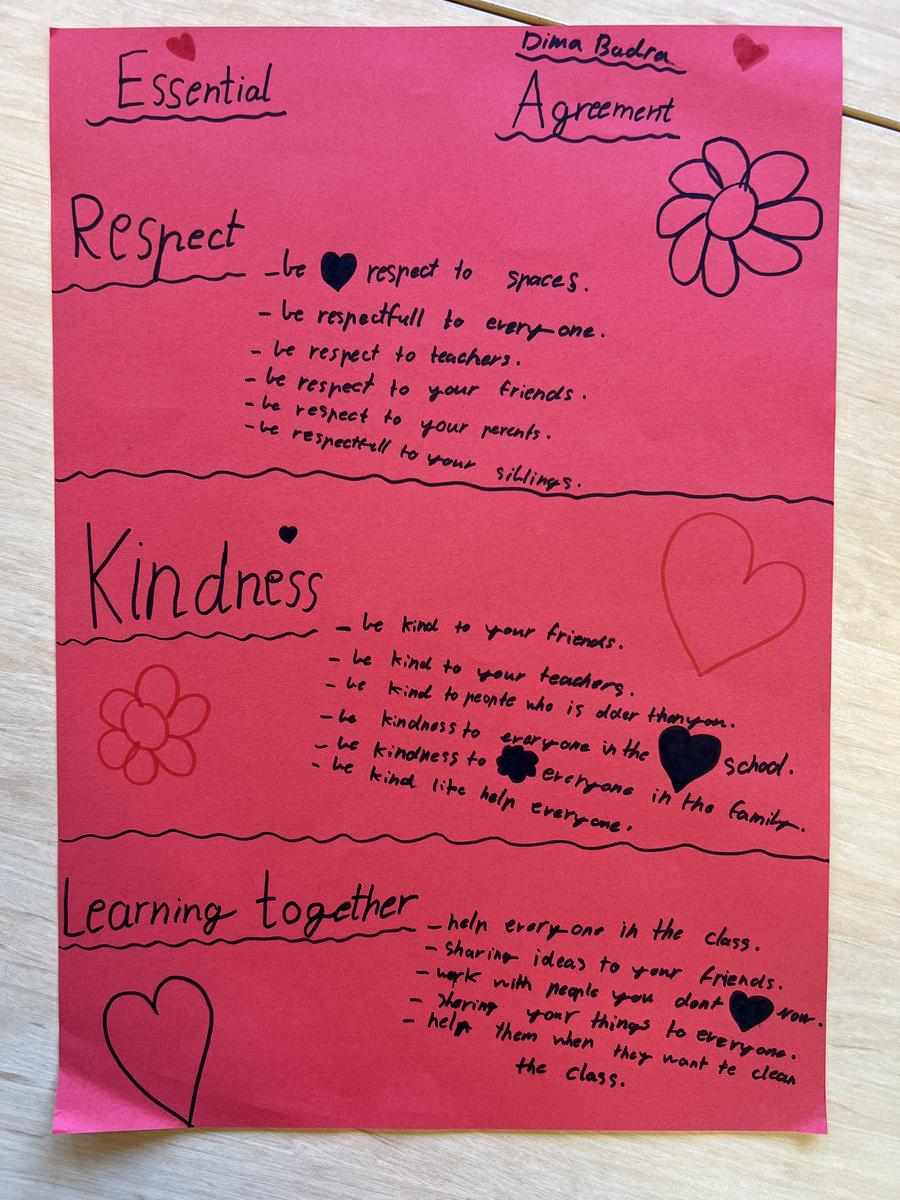 Dima Badra
Essential Agreement
Respect
- be respect to spaces.
- be respectfull to everyone.
- be respect to teachers.
- be respect to your friends.
- be respect to your perents.
- be respectfull to your siblings.
Kindness
- be kind to your friends.
- be kind to your teachers.
- be kind to people who is older than you.
- be kindness to everyone in the school.
- be kindness to everyone in the family.
- be kind like help everyone.
Learning together
- help everyone in the class.
- sharing ideas to your friends.
- work with people you dont now.
- sharing your things to everyone.
- help them when they want te clean
the class.